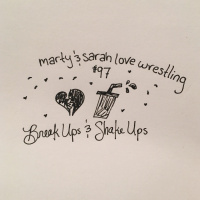 marty & sarah love wrestling
#97
Break Ups & Shake Ups